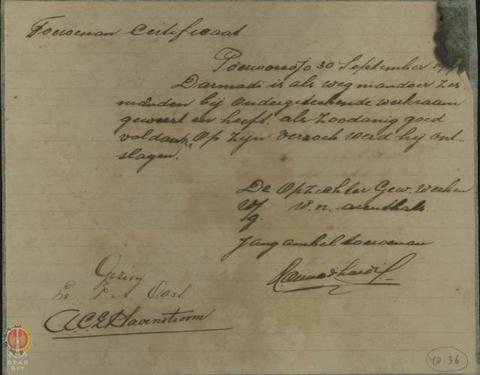 Toeroenan Certificaat
Poerworedjo 30 September
Darmadi is als weg mandoer zes
maanden bij Ondergetekende werkzaam
geweest en heeft als Zoodanig goed
voldaan, Op zijn verzoek werd hij ont-
slagen.
De Opzichter Gew. Werken
w/g.
Jang ambel toeroenan
Gezien
A.C.E. Havenstroom
DPAD
DIY
10.36